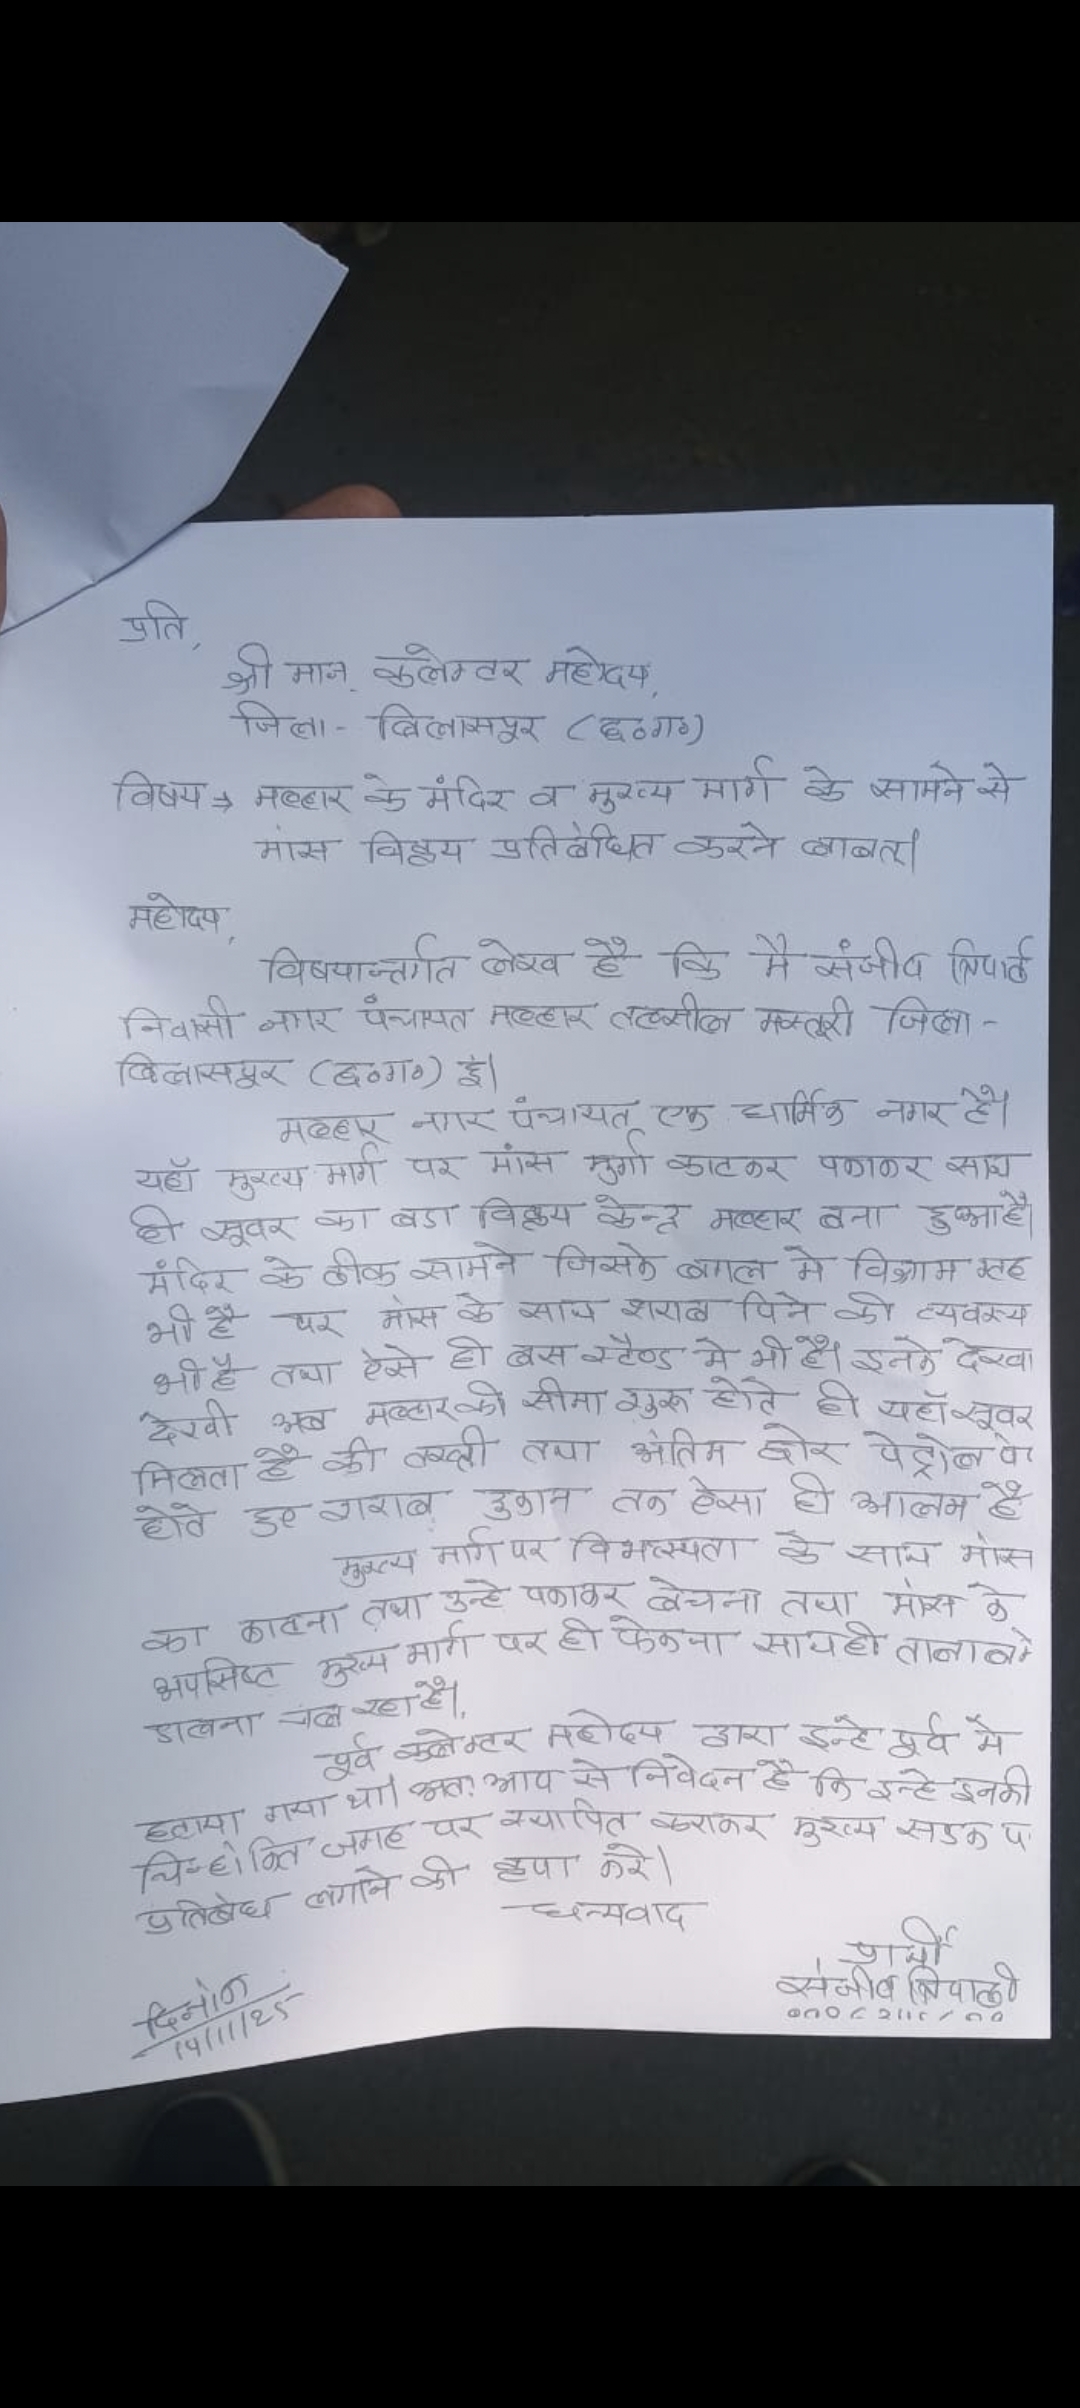 प्रति,
श्री मान. कलेक्टर महोदय,
जिला - बिलासपुर (छ०ग०)
विषय → मल्हार के मंदिर व मुख्य मार्ग के सामने से
मांस विक्रय प्रतिबंधित करने बाबत्।
महोदय,
विषयान्तर्गत लेख है कि मै संजीव त्रिपाठी
निवासी नगर पंचायत मल्हार तहसील मस्तूरी जिला -
बिलासपुर (छ०ग०) हूं।
मल्हार नगर पंचायत एक धार्मिक नगर है।
यहाँ मुख्य मार्ग पर मांस मुर्गा काटकर पकाकर साथ
ही सूवर का बडा विक्रय केन्द्र मल्हार बना हुआ है।
मंदिर के ठीक सामने जिसके बगल मे विश्राम गृह
भी है पर मांस के साथ शराब पिने की व्यवस्था
भी है तथा ऐसे ही बस स्टैण्ड मे भी है। इनके देखा
देखी अब मल्हार की सीमा शुरू होते ही यहाँ सूवर
मिलता है की तख्ती तथा अंतिम छोर पेट्रोल पं
होते हुए शराब दुकान तक ऐसा ही आलम है
मुख्य मार्ग पर विभत्स्यता के साथ मांस
का काटना तथा उन्हे पकाकर बेचना तथा मांस के
अपसिष्ट मुख्य मार्ग पर ही फेकना साथ ही तालाब मे
डालना चल रहा है।
पूर्व कलेक्टर महोदय द्वारा इन्हे पूर्व मे
हटाया गया था। अतः आप से निवेदन है कि इन्हे इनकी
चिन्हांकित जगह पर स्थापित कराकर मुख्य सडक प
प्रतिबंध लगाने की कृपा करे।
धन्यवाद
प्रार्थी
संजीव त्रिपाठी
दिनांक
14/11/25